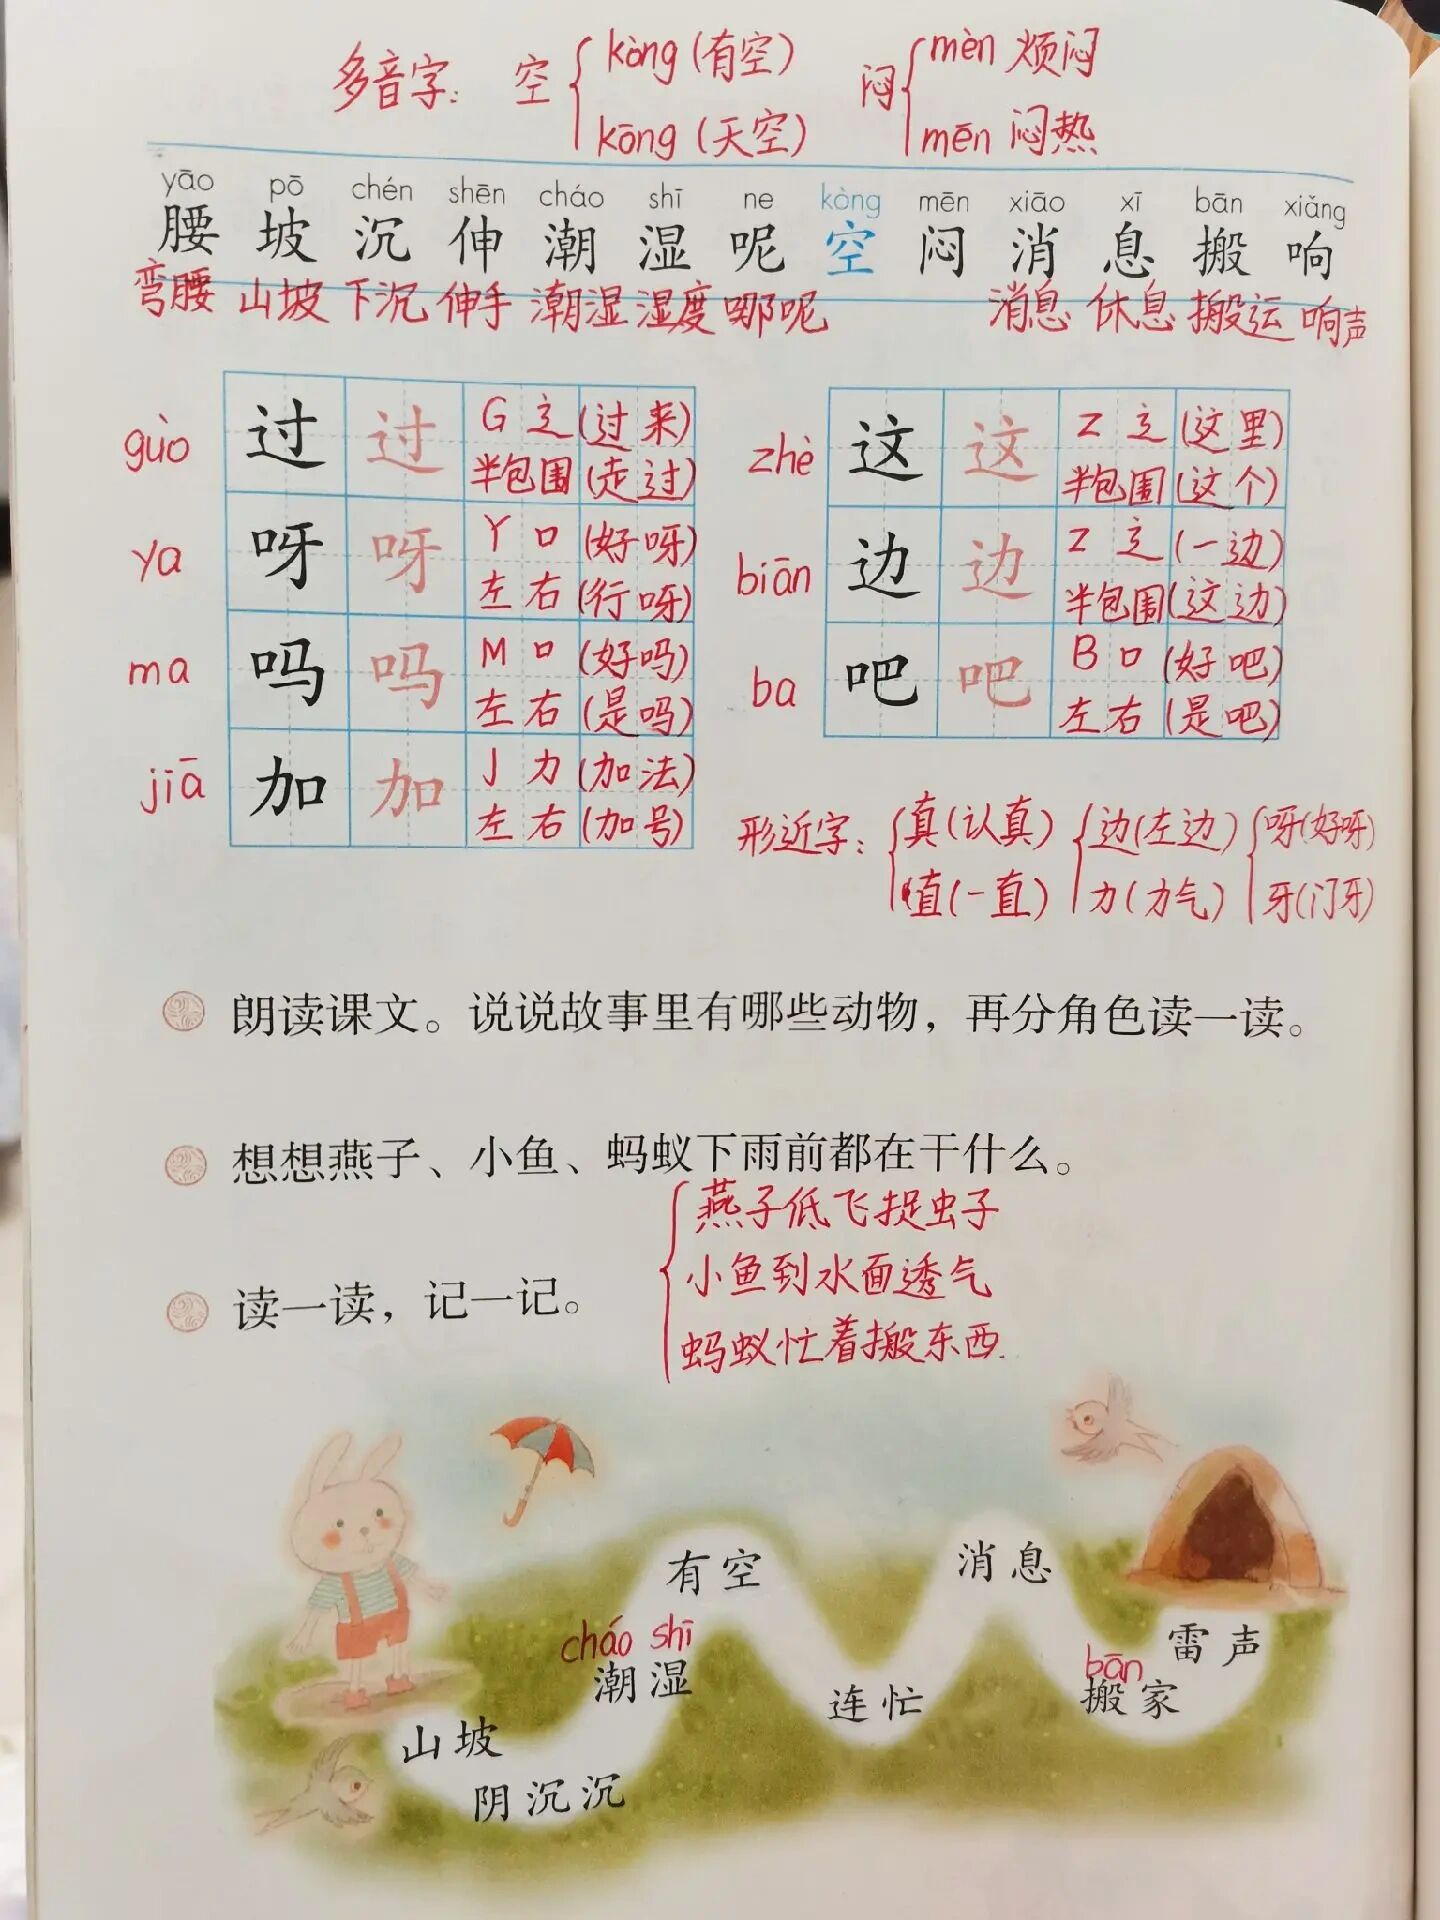 多音字： 空 kòng (有空) 闷 mèn 烦闷
kōng (天空) mēn 闷热
yāo pō chén shēn cháo shī ne kòng mēn xiāo xī bān xiǎng
腰 坡 沉 伸 潮 湿 呢 空 闷 消 息 搬 响
弯腰 山坡 下沉 伸手 潮湿 湿度 哪呢 消息 休息 搬运 响声
guò 过 过 G 辶 (过来)
半包围 (走过)
ya 呀 呀 Y 口 (好呀)
左右 (行呀)
ma 吗 吗 M 口 (好吗)
左右 (是吗)
jiā 加 加 J 力 (加法)
左右 (加号)
zhè 这 这 Z 辶 (这里)
半包围 (这个)
biān 边 边 Z 辶 (一边)
半包围 (这边)
ba 吧 吧 B 口 (好吧)
左右 (是吧)
形近字： 真(认真) 边(左边) 呀(好呀)
直(一直) 力(力气) 牙(门牙)
朗读课文。说说故事里有哪些动物，再分角色读一读。
想想燕子、小鱼、蚂蚁下雨前都在干什么。
燕子低飞捉虫子
小鱼到水面透气
蚂蚁忙着搬东西.
读一读，记一记。
有空
消息
cháo shī
潮湿
雷声
bān
搬家
连忙
山坡
阴沉沉